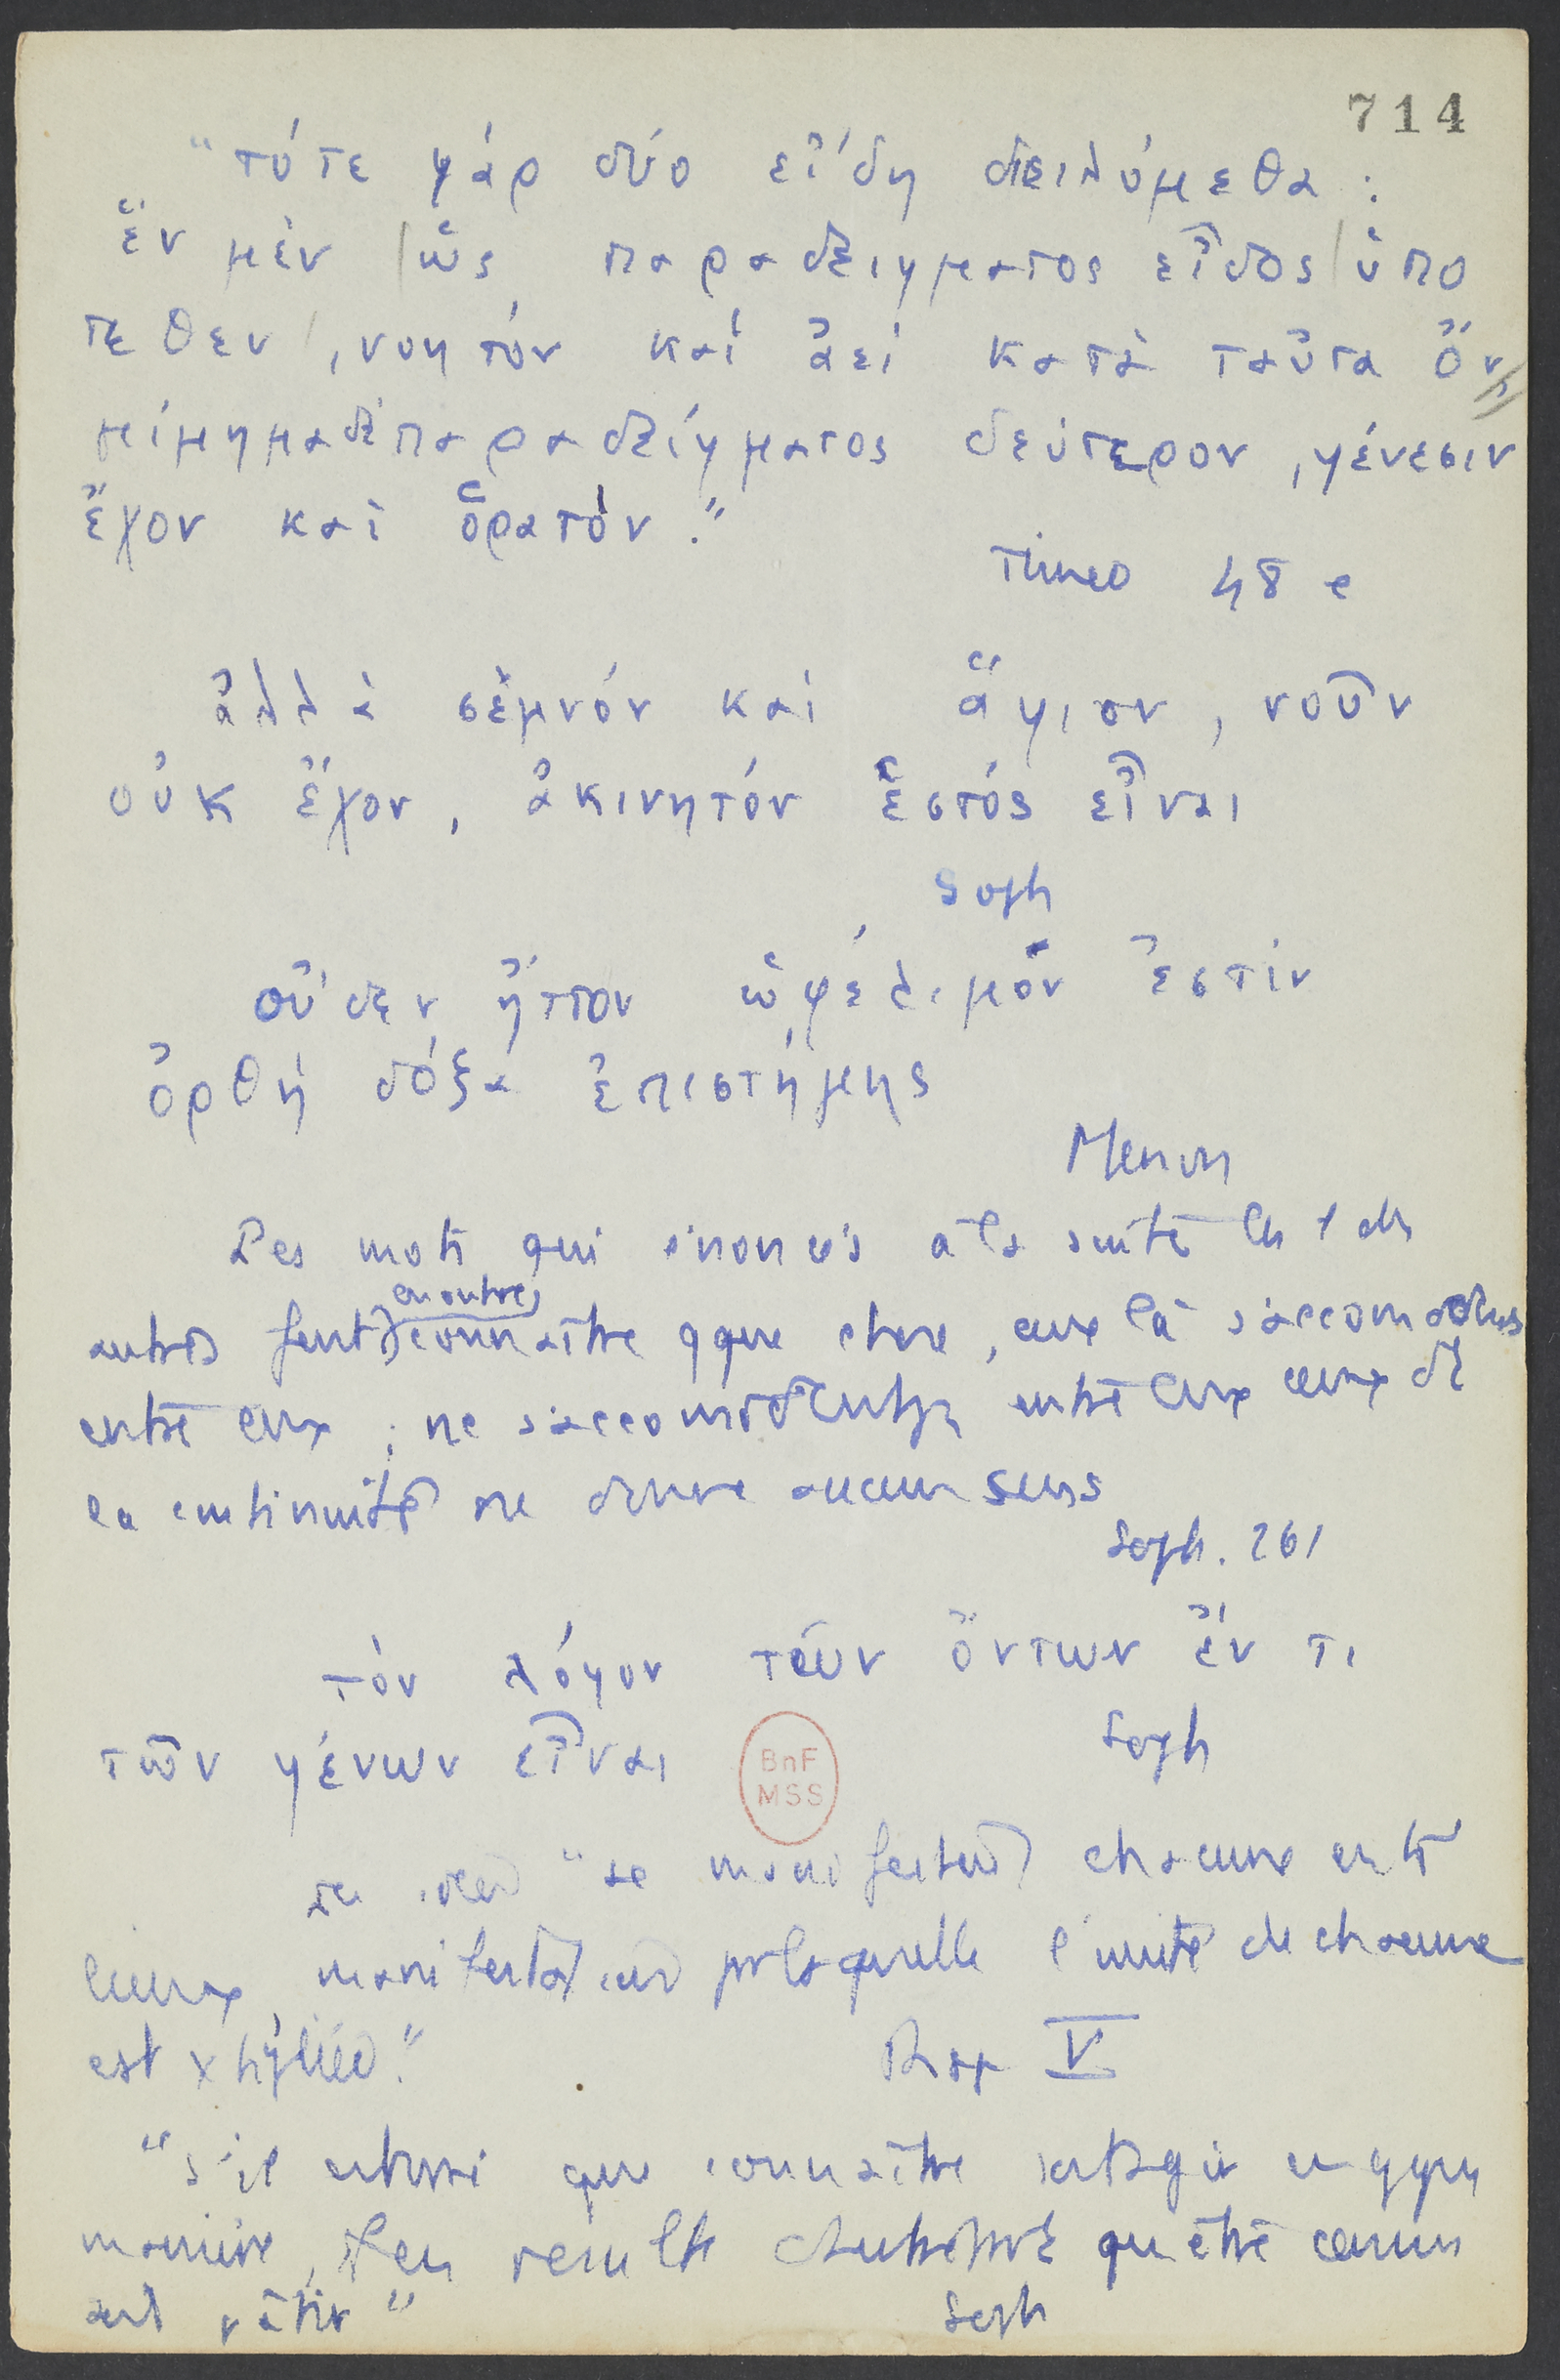 714
"τότε γάρ δύο εἴδη διειλόμεθα :
ἕν μέν / ὡς παραδειγματος εἶδος / ὑπο
τεθεν /, νοητόν καὶ ἀεί κατὰ ταὐτα ὄν,
μίμημα δὲ παραδείγματος δεύτερον, γένεσιν
ἔχον καὶ ὁρατόν."
Timeo 48 e
ἀλλὰ σέμνόν καὶ ἅγιον, νοῦν
οὐκ ἔχον, ἀκινητόν ἑστός εἶναι
Soph
οὐδεν ἧττον ὠφέλιμον ἐστίν
ὀρθή δόξα ἐπιστήμης
Menon
Les mots qui énoncés à la suite les 1 des
en outre
autres font connaître qque chose, ceux là s'accommodent
entre eux ; ne s'accommodent pas entre eux ceux dt
la continuité ne donne aucun sens
Soph. 261
τόν λόγον τῶν ὄντων ἕν τι
τῶν γένων εἶναι
Soph
BnF
MSS
"se manifestent chacune entre
manifestation par laquelle l'unité de chacune
est xtipliée."
Rep V
"s'il est vrai que connaître soit agir en qque
manière, il en résulte que être connu
est pâtir"
Soph